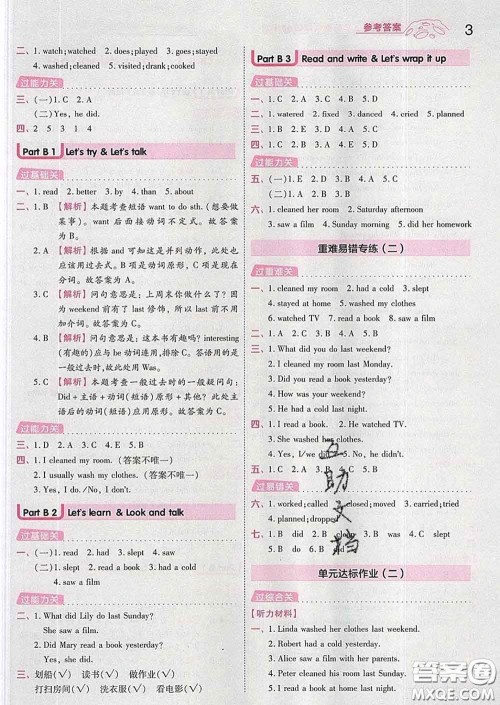 参考答案
3
二、1. watch;watched 2. do;did 3. go;goes
4. washed;cleaned 5. visited 6. drank;cooked
过能力关
三、(一)1. C 2. A
(二)Yes, he did.
四、2 5 3 1 4
Part B 1 Let's try & Let's talk
过基础关
一、1. read 2. better 3. by 4. than 5. about
二、1. B 【解析】本题考查短语 want to do sth. (想要做
某事)。want 后面接动词不定式。故答案
为 B。
2. A 【解析】由 and 可知这是并列动作,此处也
应该用过去式。B 项为动词原形,C 项为动词现在分词。
故答案为 A。
3. C 【解析】问句意思是:上周末你做什么了?因
为 weekend 前有了 last 修饰,所以此处不用加
the。故答案为 C。
4. B 【解析】问句意思是:这本书有趣吗?interesting
(有趣的)应与 be 动词连用,排除 C。答语用的是
一般过去时,所以此处应用 Was。
5. C 【解析】本题考查一般过去时的一般疑问句:
Did + 主语 + 动词(短语)原形 + 其他?此处
主语后的动词(短语)应用原形。故答案为 C。
过能力关
三、1. D 2. C 3. A 4. B
四、1. I cleaned my room. (答案不唯一)
2. I usually wash my clothes. (答案不唯一)
3. Yes,I do. /No, I don't.
Part B 2 Let's learn & Look and talk
过基础关
一、(一)1. read 2. had 3. slept 4. saw
(二)1. slept 2. read a book 3. saw a film
4. had a cold
过能力关
二、1. What did Lily do last Sunday?
She saw a film.
2. Did Mary read a book yesterday?
Yes, she did.
三、划船(√) 读书(√) 做作业(√)
打扫房间(√) 洗衣服(√) 看电影(√)
Part B 3 Read and write & Let's wrap it up
过基础关
一、1. C 2. A 3. C 4. B 5. D
二、1. watered 2. fixed 3. danced 4. cried 5. planned
三、1. C 2. B 3. A 4. B 5. C
四、1. B 2. A 3. D 4. C
过能力关
五、(一)1. C 2. A 3. B 4. D 5. E
(二)1. C 2. B 3. B
六、1. cleaned her room 2. Saturday afternoon
3. saw a film 4. Sunday morning 5. did her homework
重难易错专练(二)
过重难关
一、1. cleaned my room 2. had a cold 3. slept
4. stayed at home 5. washed my clothes
6. watched TV 7. read a book 8. saw a film
二、1. C 2. B 3. A 4. B 5. D
三、1. What did you do last weekend?
2. I cleaned my room last Monday.
3. Did you read a book yesterday?
4. How was your weekend?
5. He had a cold last Sunday.
四、1. Did you see a film? 2. He watched TV.
3. She washed her clothes.
4. Yes, I/we did. 5. No, he didn't.
五、1. B 2. D 3. A 4. C
过易错关
六、1. worked;called 2. closed;moved 3. carried;tried
4. planned;dropped
七、1. B did 2. B do
5. B do 6. B did
单元达标作业(二)
过综合关
【听力材料】
一、1. Linda washed her clothes last weekend.
2. Robert had a cold last Sunday.
3. Alice saw a film with her parents.
4. Peter cleaned his room last weekend.
5. I read a book last
互助文档
答案圈
MXQE.COM